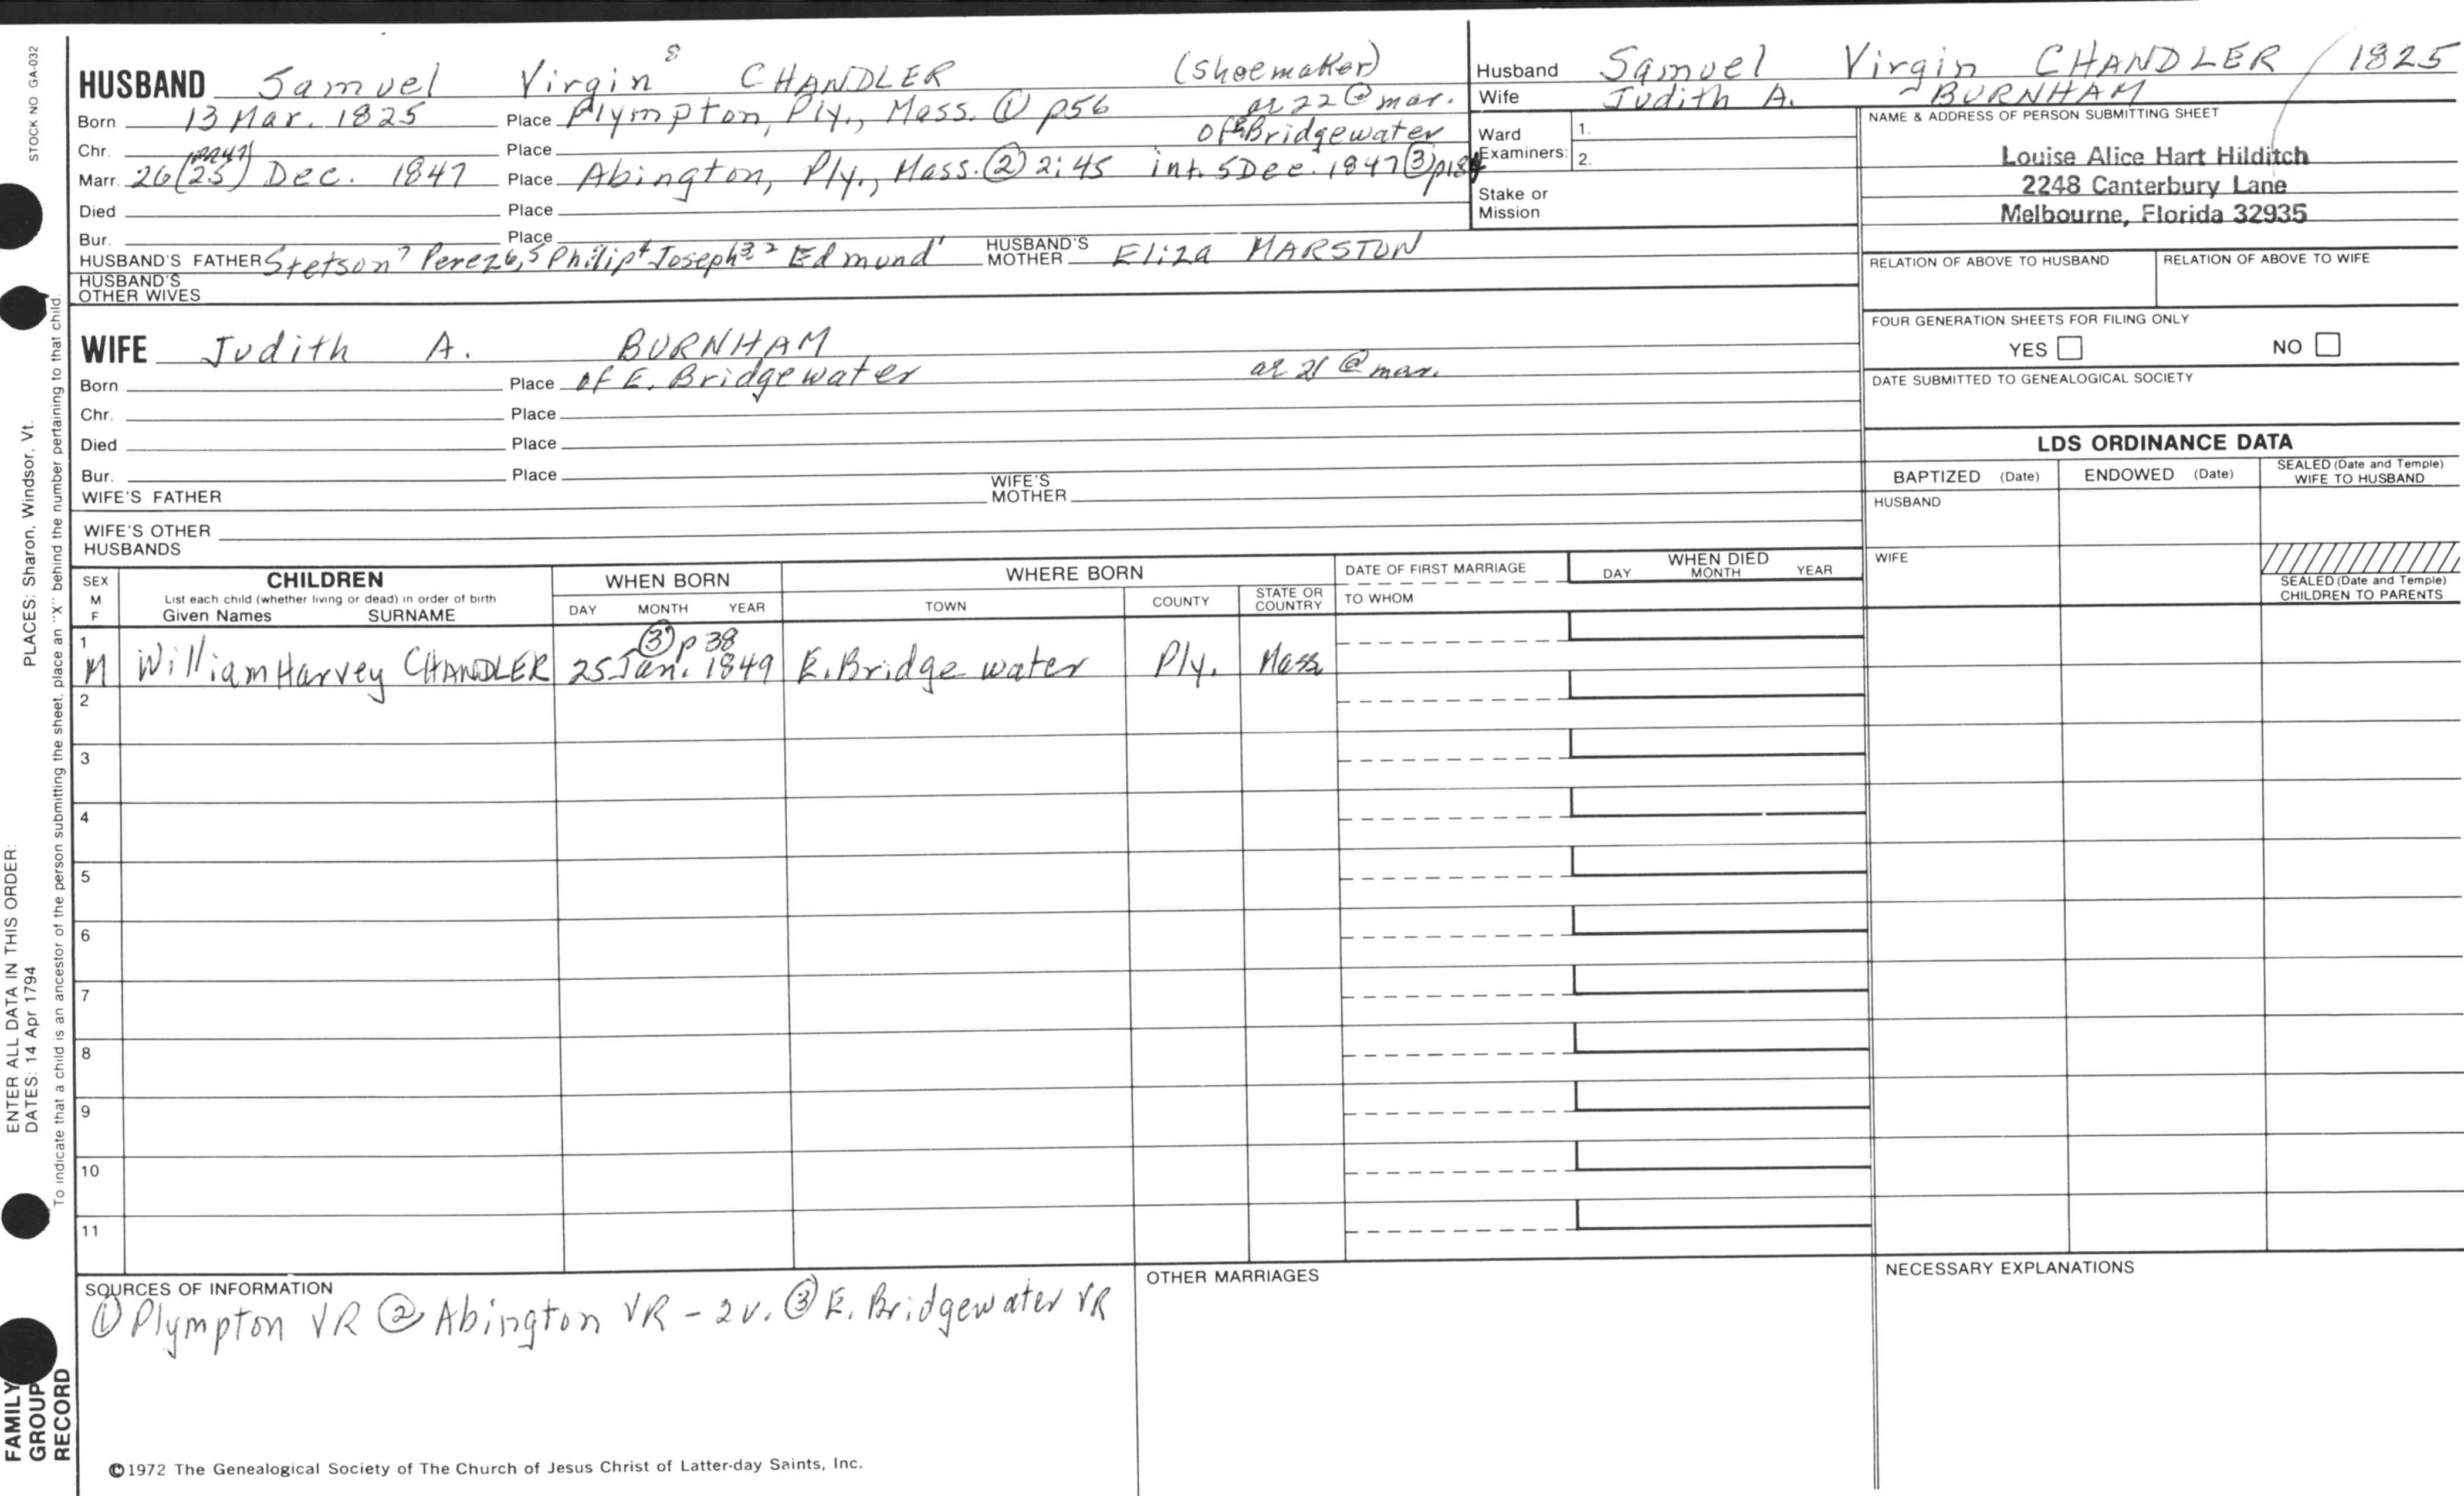 HUSBAND Samuel Virgin 8 CHANDLER (shoemaker)
Born 13 Mar. 1825 Place Plympton, Ply., Mass. ① p56 ae 22 @ mar.
Chr. Place of E Bridgewater
Marr. 26 (25) Dec. 1847 Place Abington, Ply., Mass. ② 2:45 int. 5 Dec. 1847 ③ p184
Died Place
Bur. Place
HUSBAND'S FATHER Stetson 7 Perez 6,5 Philip 4 Joseph 3 2 Edmund 1 HUSBAND'S MOTHER Eliza MARSTON
HUSBAND'S OTHER WIVES
WIFE Judith A. BURNHAM
Born Place of E. Bridgewater ae 21 @ mar.
Chr. Place
Died Place
Bur. Place
WIFE'S FATHER WIFE'S MOTHER
WIFE'S OTHER HUSBANDS
Husband Samuel Virgin CHANDLER / 1825
Wife Judith A. BURNHAM
Ward Examiners: 1.
2.
Stake or Mission
NAME & ADDRESS OF PERSON SUBMITTING SHEET
Louise Alice Hart Hilditch
2248 Canterbury Lane
Melbourne, Florida 32935
RELATION OF ABOVE TO HUSBAND RELATION OF ABOVE TO WIFE
FOUR GENERATION SHEETS FOR FILING ONLY
YES NO
DATE SUBMITTED TO GENEALOGICAL SOCIETY
LDS ORDINANCE DATA
BAPTIZED (Date) ENDOWED (Date) SEALED (Date and Temple) WIFE TO HUSBAND
HUSBAND
WIFE
SEALED (Date and Temple) CHILDREN TO PARENTS
SEX M F CHILDREN WHEN BORN WHERE BORN DATE OF FIRST MARRIAGE WHEN DIED
List each child (whether living or dead) in order of birth
Given Names SURNAME DAY MONTH YEAR TOWN COUNTY STATE OR COUNTRY TO WHOM DAY MONTH YEAR
1 ③ p 38
M William Harvey CHANDLER 25 Jan. 1849 E. Bridgewater Ply. Mass
2
3
4
5
6
7
8
9
10
11
SOURCES OF INFORMATION
① Plympton VR ② Abington VR - 2v. ③ E. Bridgewater VR
OTHER MARRIAGES
NECESSARY EXPLANATIONS
©1972 The Genealogical Society of The Church of Jesus Christ of Latter-day Saints, Inc.
STOCK NO GA-032
PLACES: Sharon, Windsor, Vt.
ENTER ALL DATA IN THIS ORDER:
DATES: 14 Apr 1794
To indicate that a child is an ancestor of the person submitting the sheet, place an "X" behind the number pertaining to that child.
FAMILY
GROUP
RECORD